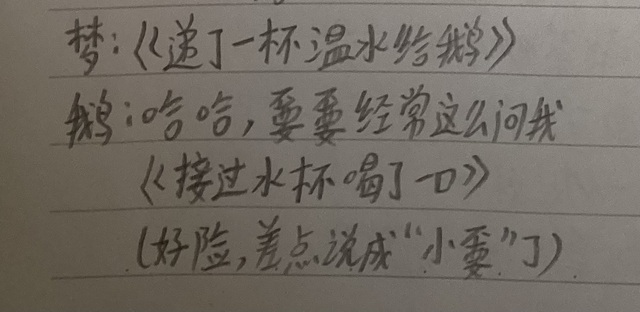 梦:《递了一杯温水给鹅》
鹅:哈哈,要要经常这么问我
《接过水杯喝了一口》
(好险,差点说成“小要”了)